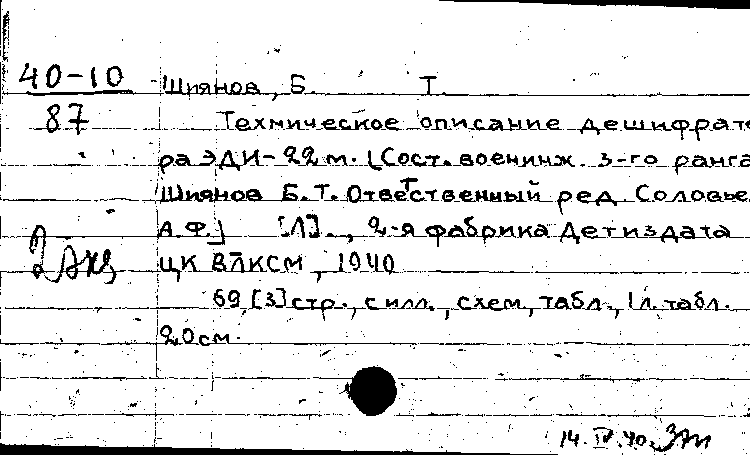 40-10
87
Шиянов, Б. Т.
Техническое описание дешифрато
ра ЭДИ-22м. [Сост. воeнинж. 3-го ранга
Шиянов Б.Т. Ответственный ред. Соловье
А.Ф.] [Л]., 2-я фабрика Детиздата
2 экз
ЦК ВЛКСМ, 1940
69,[3]стр., с илл., схем, табл., 1 л. табл.
20 см.
14.IV.40.